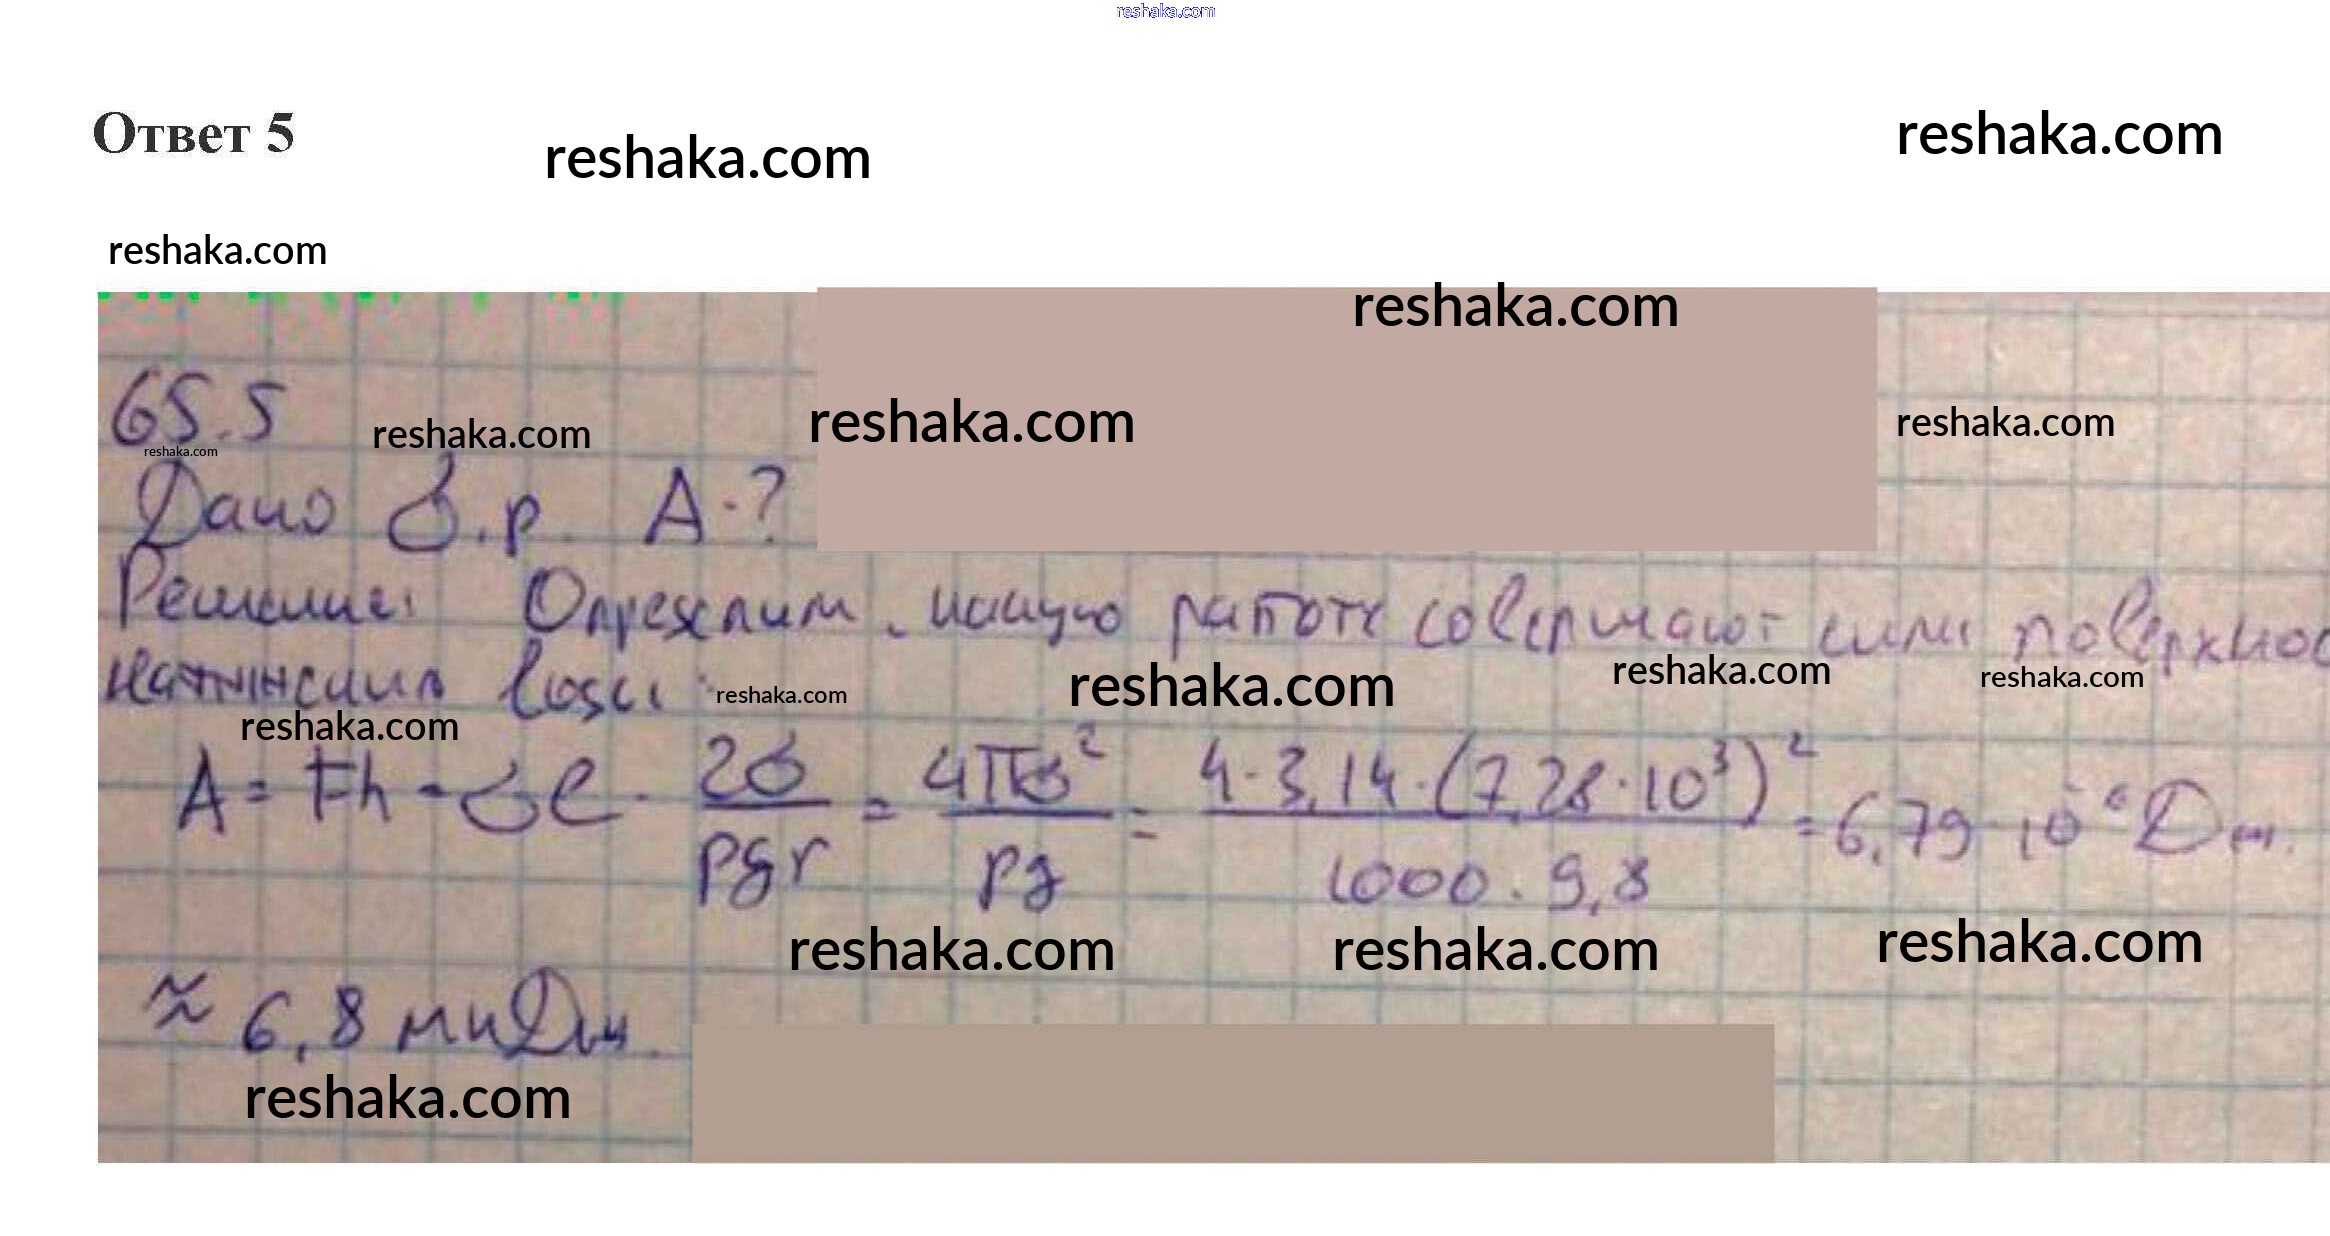 reshaka.com
Ответ 5
reshaka.com
reshaka.com
reshaka.com
reshaka.com
65.5
reshaka.com
reshaka.com
reshaka.com
reshaka.com
Дано σ.ρ. A-?
Решение: Определим, какую работу совершают силы поверхнос
натяжения воды:
reshaka.com
reshaka.com
reshaka.com
reshaka.com
reshaka.com
A = Fh = σℓ · 2σ/ρgr = 4πσ²/ρg = 4·3,14·(7,28·10³)²/1000·9,8 = 6,79·10⁻⁶ Дж.
reshaka.com
reshaka.com
reshaka.com
≈ 6,8 мкДж.
reshaka.com